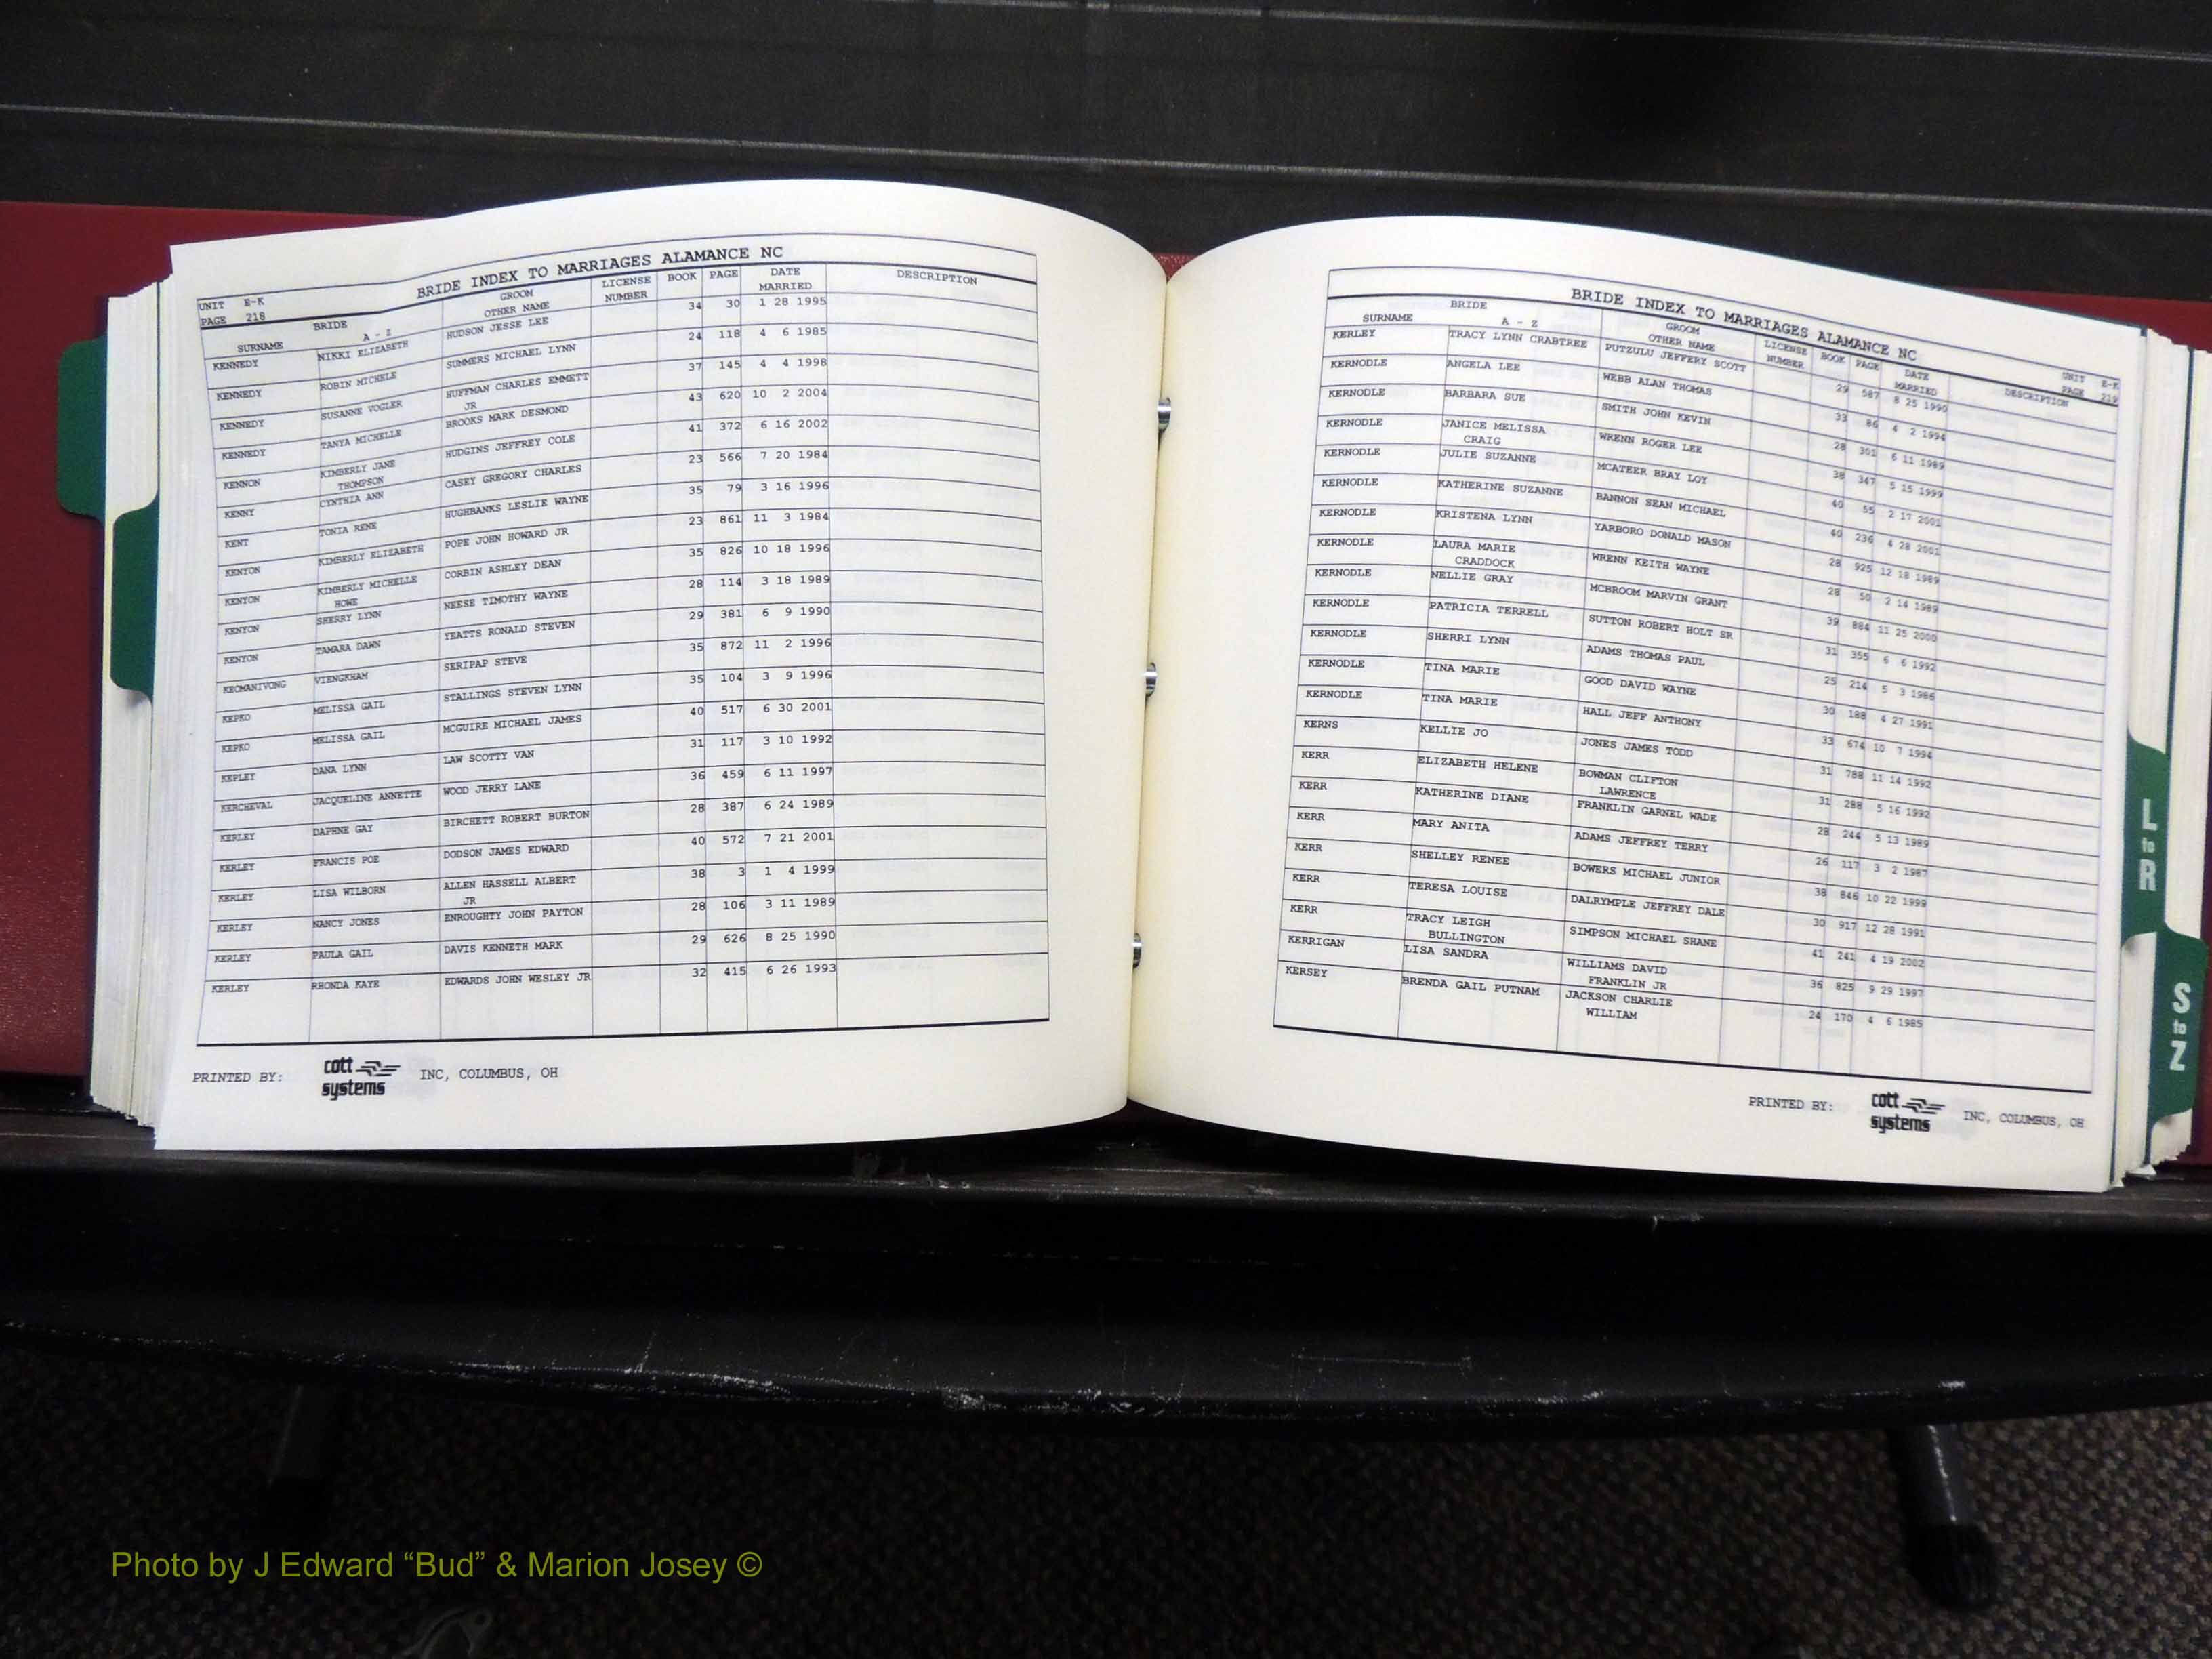 UNIT E-K BRIDE INDEX TO MARRIAGES ALAMANCE NC
PAGE 218
BRIDE GROOM LICENSE BOOK PAGE DATE DESCRIPTION
SURNAME A - Z OTHER NAME NUMBER MARRIED
KENNEDY NIKKI ELIZABETH HUDSON JESSE LEE 34 30 1 28 1995
KENNEDY ROBIN MICHELE SUMMERS MICHAEL LYNN 24 118 4 6 1985
KENNEDY SUSANNE VOGLER HUFFMAN CHARLES EMMETT 37 145 4 4 1998
JR
KENNEDY TANYA MICHELLE BROOKS MARK DESMOND 43 620 10 2 2004
KENNON KIMBERLY JANE HUDGINS JEFFREY COLE 41 372 6 16 2002
THOMPSON
KENNY CYNTHIA ANN CASEY GREGORY CHARLES 23 566 7 20 1984
KENT TONIA RENE HUGHBANKS LESLIE WAYNE 35 79 3 16 1996
KENYON KIMBERLY ELIZABETH POPE JOHN HOWARD JR 23 861 11 3 1984
KENYON KIMBERLY MICHELLE CORBIN ASHLEY DEAN 35 826 10 18 1996
HOWE
KENYON SHERRY LYNN NEESE TIMOTHY WAYNE 28 114 3 18 1989
KENYON TAMARA DAWN YEATTS RONALD STEVEN 29 381 6 9 1990
KEOMANIVONG VIENGKHAM SERIPAP STEVE 35 872 11 2 1996
KEPKO MELISSA GAIL STALLINGS STEVEN LYNN 35 104 3 9 1996
KEPKO MELISSA GAIL MCGUIRE MICHAEL JAMES 40 517 6 30 2001
KEPLEY DANA LYNN LAW SCOTTY VAN 31 117 3 10 1992
KERCHEVAL JACQUELINE ANNETTE WOOD JERRY LANE 36 459 6 11 1997
KERLEY DAPHNE GAY BIRCHETT ROBERT BURTON 28 387 6 24 1989
KERLEY FRANCIS POE DODSON JAMES EDWARD 40 572 7 21 2001
KERLEY LISA WILBORN ALLEN HASSELL ALBERT 38 3 1 4 1999
JR
KERLEY NANCY JONES ENROUGHTY JOHN PAYTON 28 106 3 11 1989
KERLEY PAULA GAIL DAVIS KENNETH MARK 29 626 8 25 1990
KERLEY RHONDA KAYE EDWARDS JOHN WESLEY JR 32 415 6 26 1993
PRINTED BY: cott systems INC, COLUMBUS, OH
BRIDE INDEX TO MARRIAGES ALAMANCE NC UNIT E-K
PAGE 219
BRIDE GROOM LICENSE BOOK PAGE DATE DESCRIPTION
SURNAME A - Z OTHER NAME NUMBER MARRIED
KERLEY TRACY LYNN CRABTREE PUTZULU JEFFERY SCOTT 29 587 8 25 1990
KERNODLE ANGELA LEE WEBB ALAN THOMAS 33 86 4 2 1994
KERNODLE BARBARA SUE SMITH JOHN KEVIN 28 301 6 11 1989
KERNODLE JANICE MELISSA WRENN ROGER LEE 38 347 5 15 1999
CRAIG
KERNODLE JULIE SUZANNE MCATEER BRAY LOY 40 55 2 17 2001
KERNODLE KATHERINE SUZANNE BANNON SEAN MICHAEL 40 236 4 28 2001
KERNODLE KRISTENA LYNN YARBORO DONALD MASON 28 925 12 18 1989
KERNODLE LAURA MARIE WRENN KEITH WAYNE 28 50 2 14 1989
CRADDOCK
KERNODLE NELLIE GRAY MCBROOM MARVIN GRANT 39 884 11 25 2000
KERNODLE PATRICIA TERRELL SUTTON ROBERT HOLT SR 31 355 6 6 1992
KERNODLE SHERRI LYNN ADAMS THOMAS PAUL 25 214 5 3 1986
KERNODLE TINA MARIE GOOD DAVID WAYNE 30 188 4 27 1991
KERNODLE TINA MARIE HALL JEFF ANTHONY 33 674 10 7 1994
KERNS KELLIE JO JONES JAMES TODD 31 788 11 14 1992
KERR ELIZABETH HELENE BOWMAN CLIFTON 31 288 5 16 1992
LAWRENCE
KERR KATHERINE DIANE FRANKLIN GARNEL WADE 28 244 5 13 1989
KERR MARY ANITA ADAMS JEFFREY TERRY 26 117 3 2 1987
KERR SHELLEY RENEE BOWERS MICHAEL JUNIOR 38 846 10 22 1999
KERR TERESA LOUISE DALRYMPLE JEFFREY DALE 30 917 12 28 1991
KERR TRACY LEIGH SIMPSON MICHAEL SHANE 41 241 4 19 2002
BULLINGTON
KERRIGAN LISA SANDRA WILLIAMS DAVID 36 825 9 29 1997
FRANKLIN JR
KERSEY BRENDA GAIL PUTNAM JACKSON CHARLIE 24 170 4 6 1985
WILLIAM
PRINTED BY: cott systems INC, COLUMBUS, OH
L to R
S to Z
Photo by J Edward “Bud” & Marion Josey ©